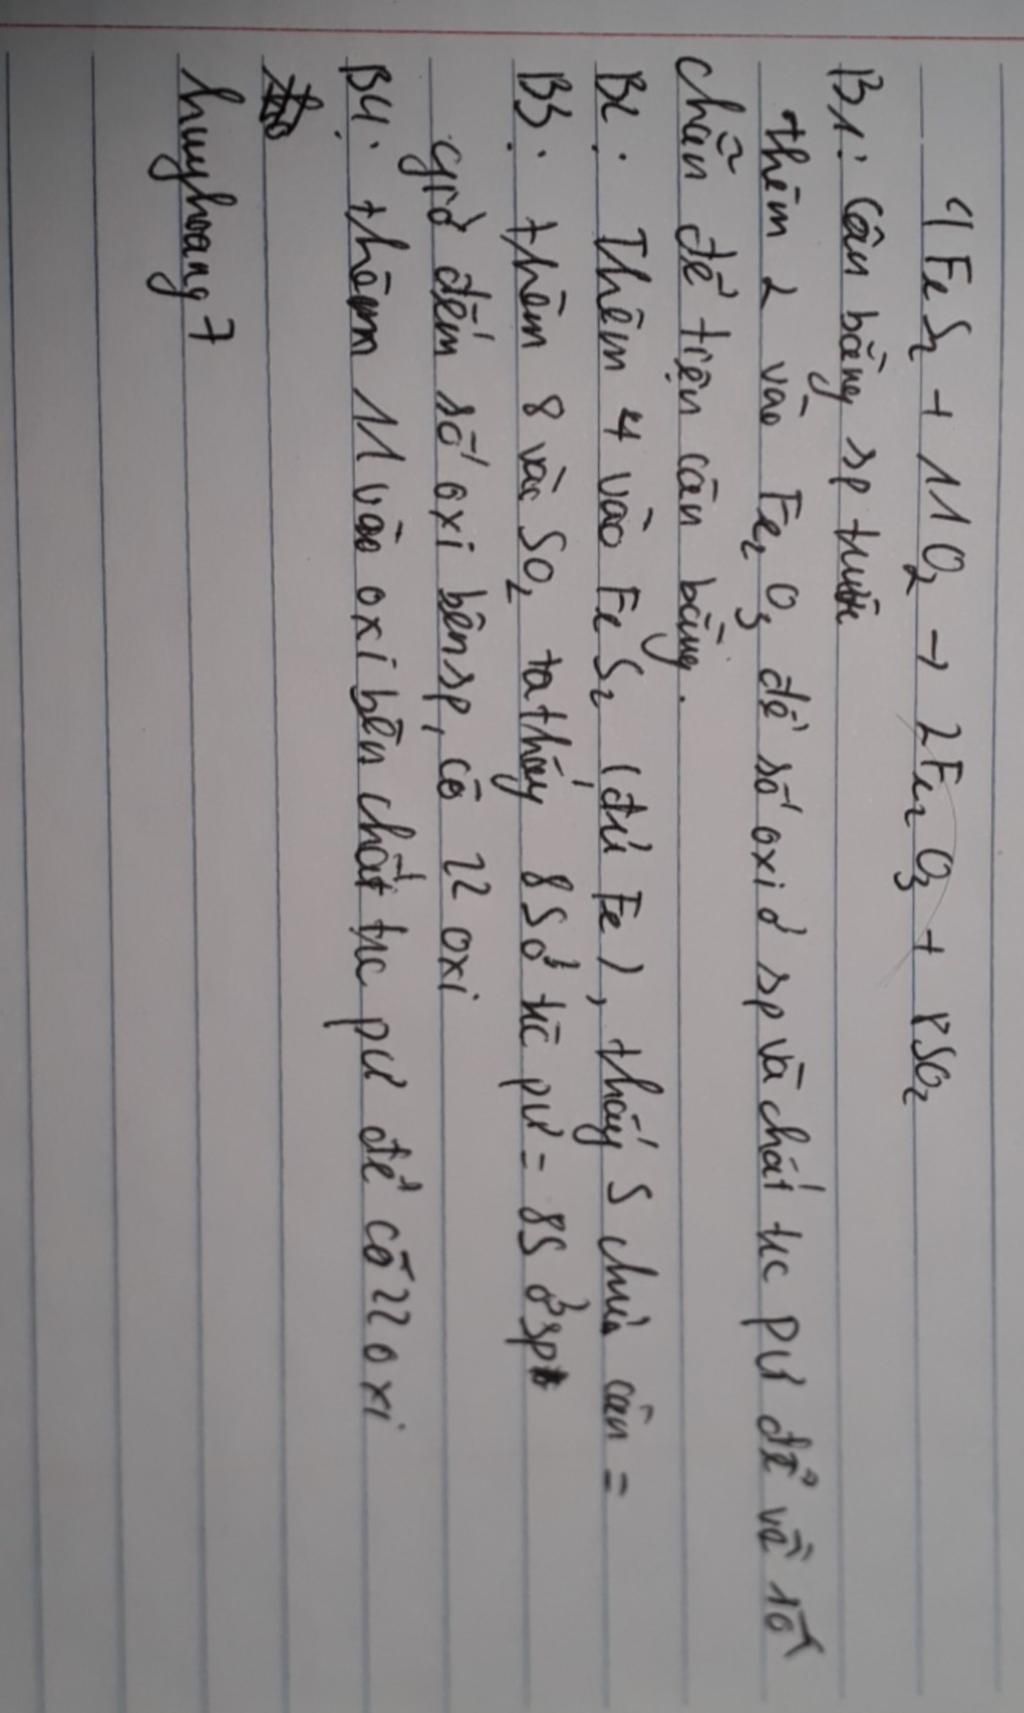 4FeS2 + 11O2 → 2Fe2O3 + 8SO2
B1: Cân bằng sp trước
thêm 2 vào Fe2O3 để số oxi ở sp và chất tk pư để về số
chẵn để tiện cân bằng.
B2: Thêm 4 vào FeS2 (đủ Fe), thấy S chưa cân =
B3: thêm 8 vào SO2 ta thấy 8S ở tk pư = 8S ở sp
giờ đếm số oxi bên sp, có 22 oxi
B4: thêm 11 vào oxi bên chất tk pư để có 22 oxi
huyhoang7